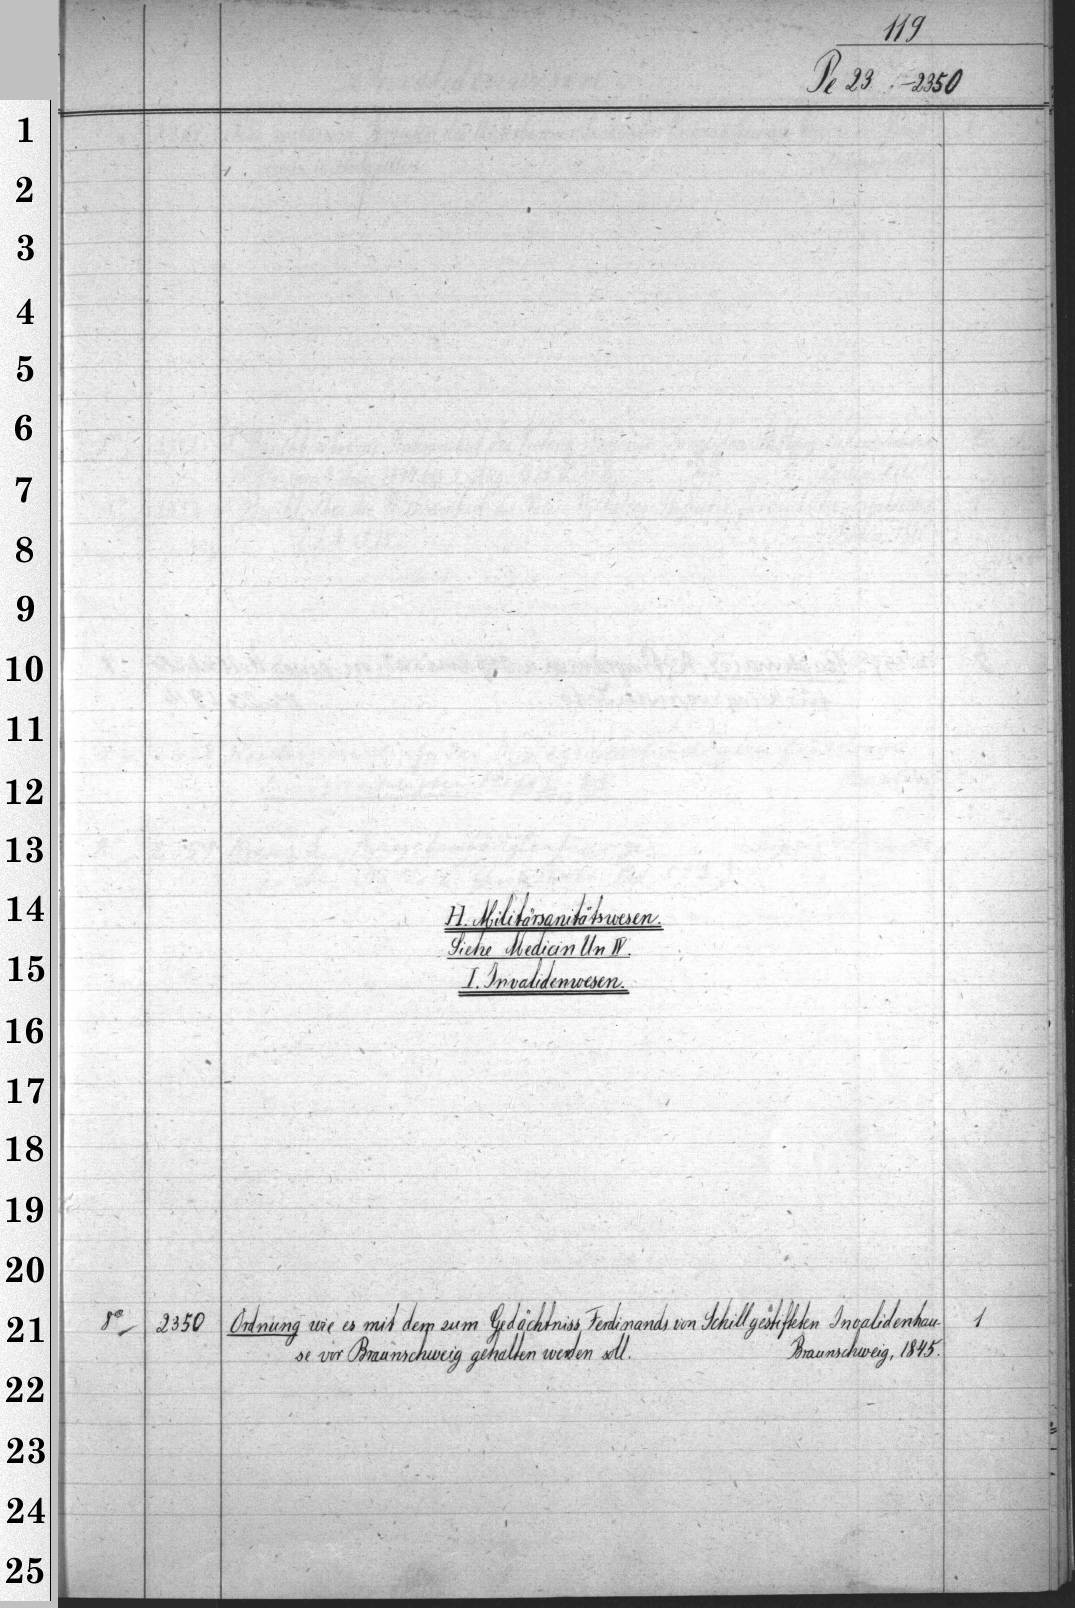 119
Pe 23 -2350
1
2
3
4
5
6
7
8
9
10
11
12
13
14
H. Militärsanitätswesen.
Siehe Medicin Un IV.
15
I. Invalidenwesen.
16
17
18
19
20
21
8° 2350 Ordnung wie es mit dem zum Gedächtniss Ferdinands von Schill gestifteten Invalidenhau- 1
se vor Braunschweig gehalten werden soll. Braunschweig, 1845.
22
23
24
25